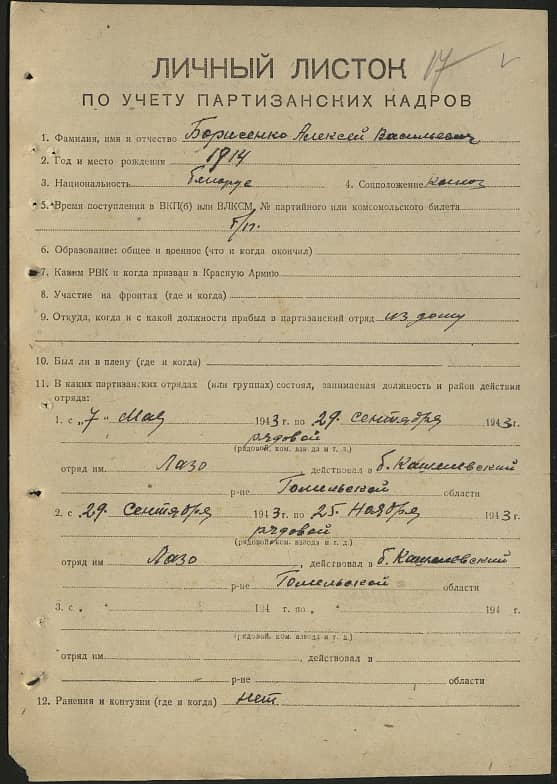 17
ЛИЧНЫЙ ЛИСТОК
ПО УЧЕТУ ПАРТИЗАНСКИХ КАДРОВ
1. Фамилия, имя и отчество Борисенко Алексей Васильевич
2. Год и место рождения 1914
3. Национальность белорус 4. Соцположение колхоз
5. Время поступления в ВКП(б) или ВЛКСМ, № партийного или комсомольского билета
б/п.
6. Образование: общее и военное (что и когда окончил)
7. Каким РВК и когда призван в Красную Армию
8. Участие на фронтах (где и когда)
9. Откуда, когда и с какой должности прибыл в партизанский отряд из дому
10. Был ли в плену (где и когда)
11. В каких партизанских отрядах (или группах) состоял, занимаемая должность и район действия
отряда:
1. с „7" Мая 1943 г. по 29. сентября 1943 г.
рядовой
(рядовой, ком. взвода и т. д.)
отряд им. Лазо, действовал в б. Кашелевский
р-не Гомельской области
2. с 29. Сентября 1943 г. по 25. Ноября 1943 г.
рядовой
(рядовой, ком. взвода и т. д.)
отряд им Лазо, действовал в б. Кашелевский
р-не Гомельской области
3. с 194 г. по 194 г.
(рядовой, ком. взвода и т. д.)
отряд им., действовал в
р-не области
12. Ранения и контузии (где и когда) нет